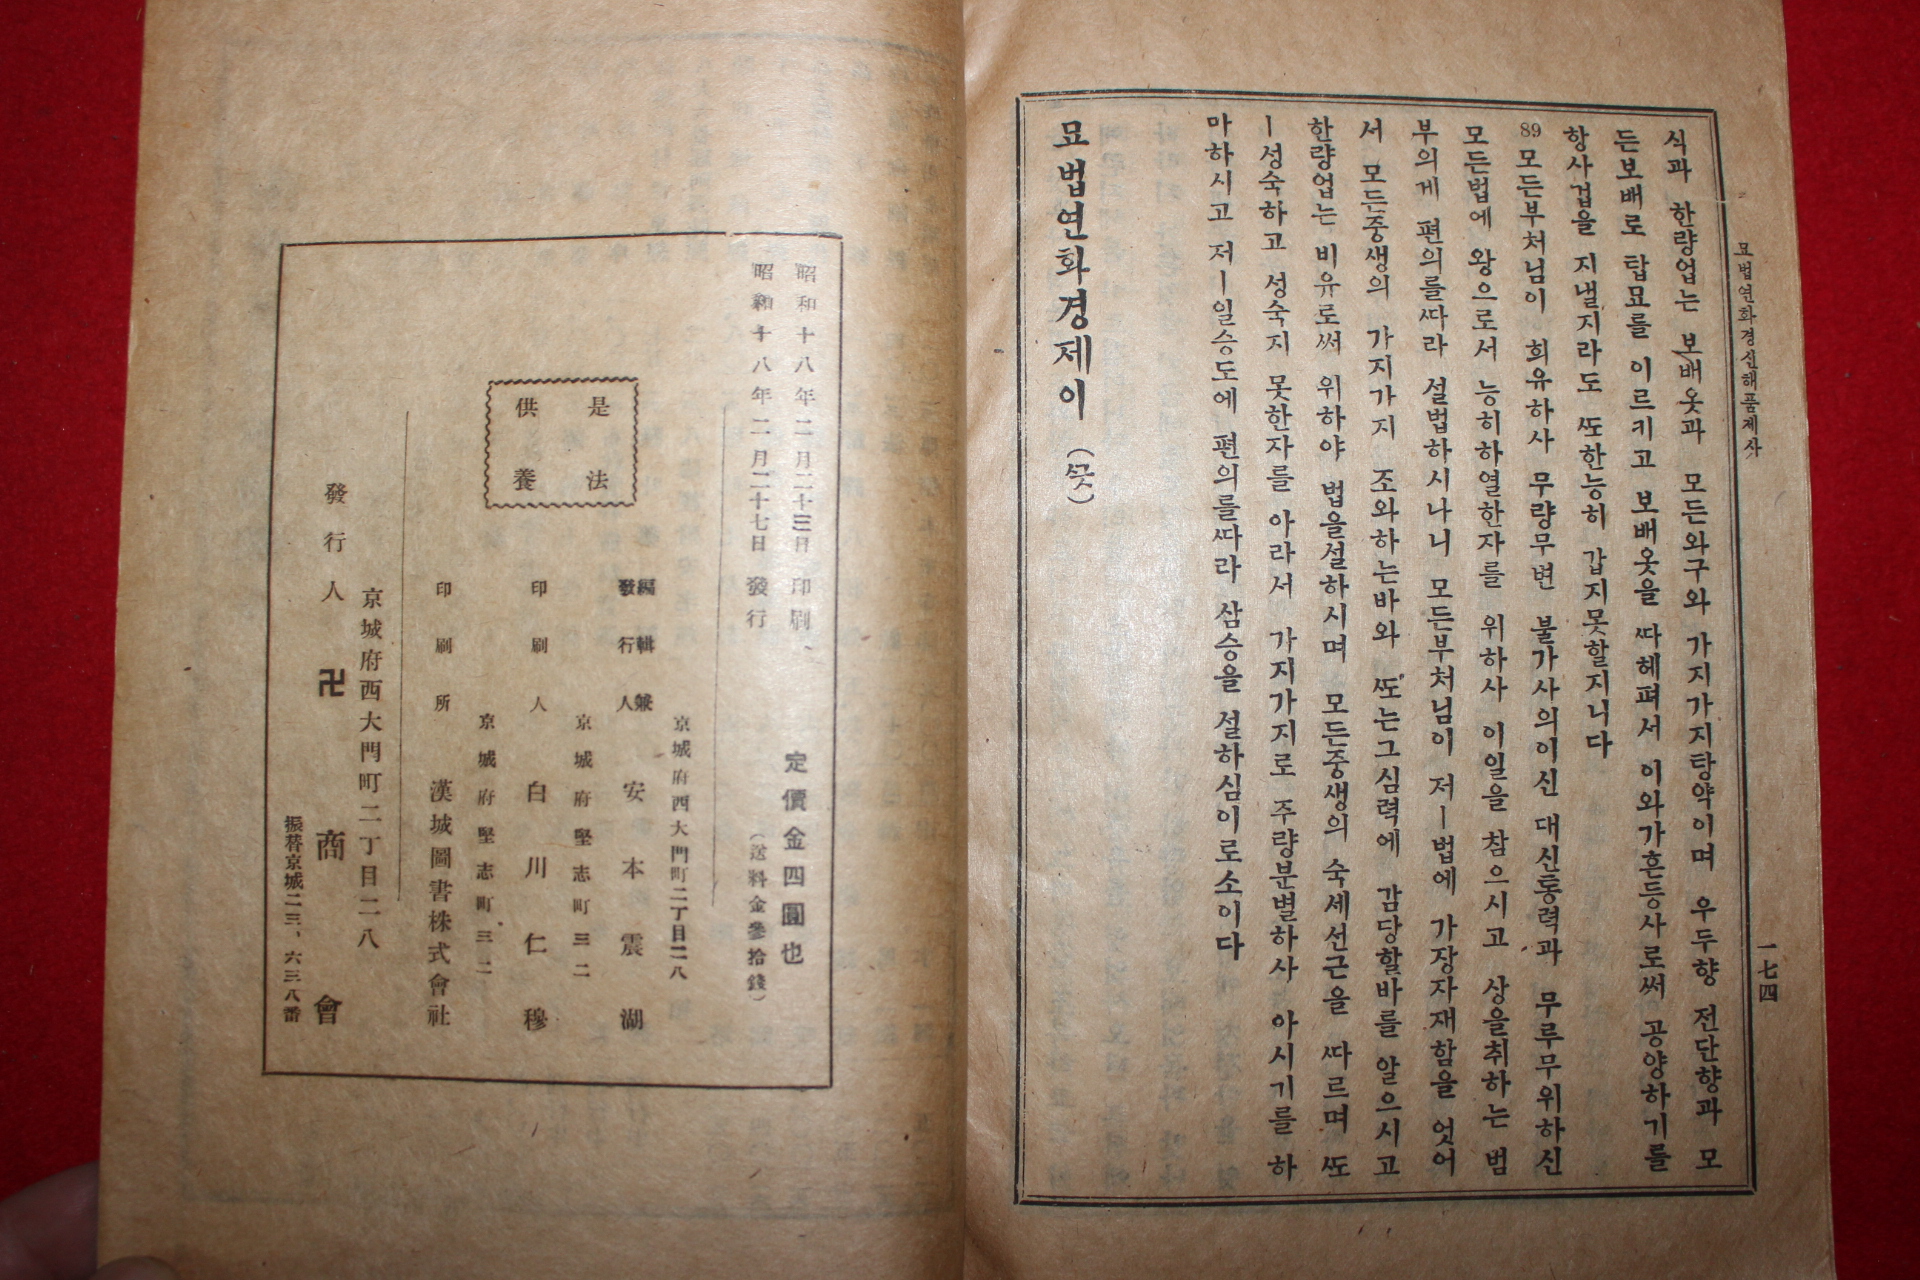 묘법연화경신해품제사
一七四
식과 한량업는 보배옷과 모든와구와 가지가지탕약이며 우두향 전단향과 모
든보배로 탑묘를 이르키고 보배옷을 ᄯᅡ헤펴서 이와가흔등사로써 공양하기를
항사겁을 지낼지라도 ᄯᅩ한능히 갑지못할지니다
89 모든부처님이 희유하사 무량무변 불가사의이신 대신통력과 무루무위하신
모든법에 왕으로서 능히하열한자를 위하사 이일을 참으시고 상을취하는 범
부의게 편의를ᄯᅡ라 설법하시나니 모든부처님이 저ㅣ법에 가장자재함을 엇어
서 모든중생의 가지가지 조와하는바와 ᄯᅩ는그심력에 감당할바를 알으시고
한량업는 비유로써 위하야 법을설하시며 모든중생의 숙세선근을 ᄯᅡ르며 ᄯᅩ
ㅣ성숙하고 성숙지 못한자를 아라서 가지가지로 주량분별하사 아시기를 하
마하시고 저ㅣ일승도에 편의를ᄯᅡ라 삼승을 설하심이로소이다
묘법연화경제이 (ᄭᅳᆺ)
昭和十八年二月二十三日 印刷、
昭和十八年二月二十七日 發行
定價金四圓也
(送料金參拾錢)
是法
供養
京城府西大門町二丁目二八
編輯兼
發行人 安本震湖
京城府堅志町三二
印刷人 白川仁穆
京城府堅志町三二
印刷所 漢城圖書株式會社
京城府西大門町二丁目二八
發行人 卍商會
振替京城二三、六三八番